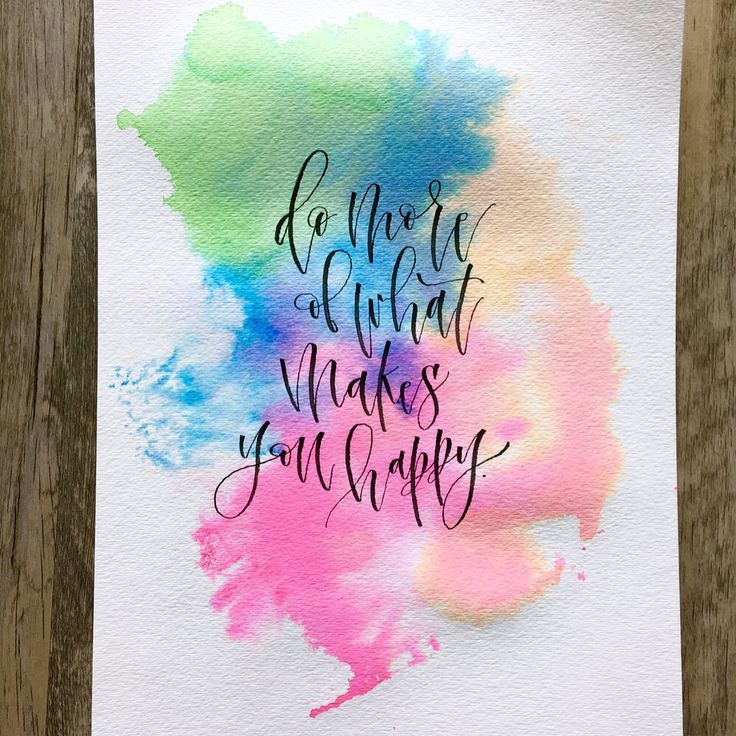 do more
of what
makes
you happy.